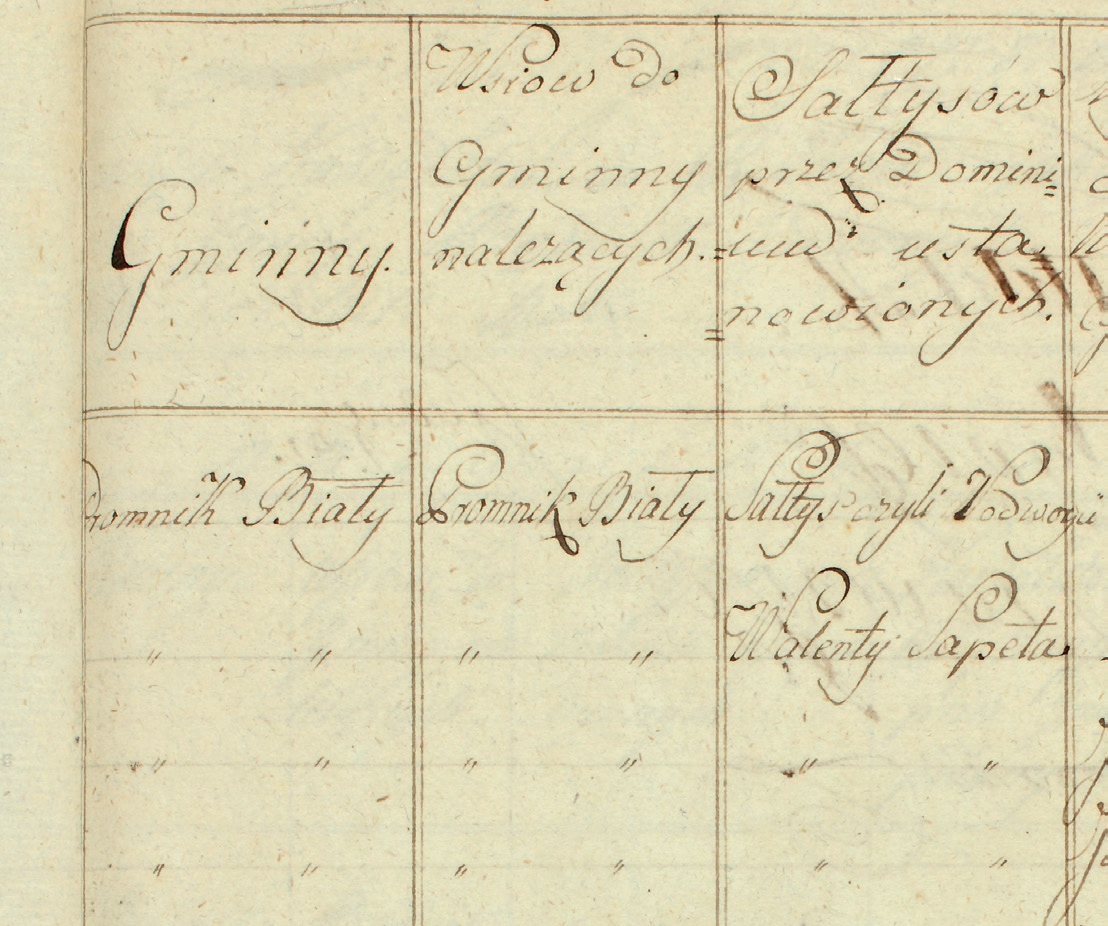 Gminny.
Wsiow do
Gminny
należących.
Sałtysów
przez Domini=
=um usta=
=nowionych.
Promnik Biały
Promnik Biały
Sałtys czyli Podwoyci
Walenty Sapeta
" " " "
" " " " " "
" " " " " "